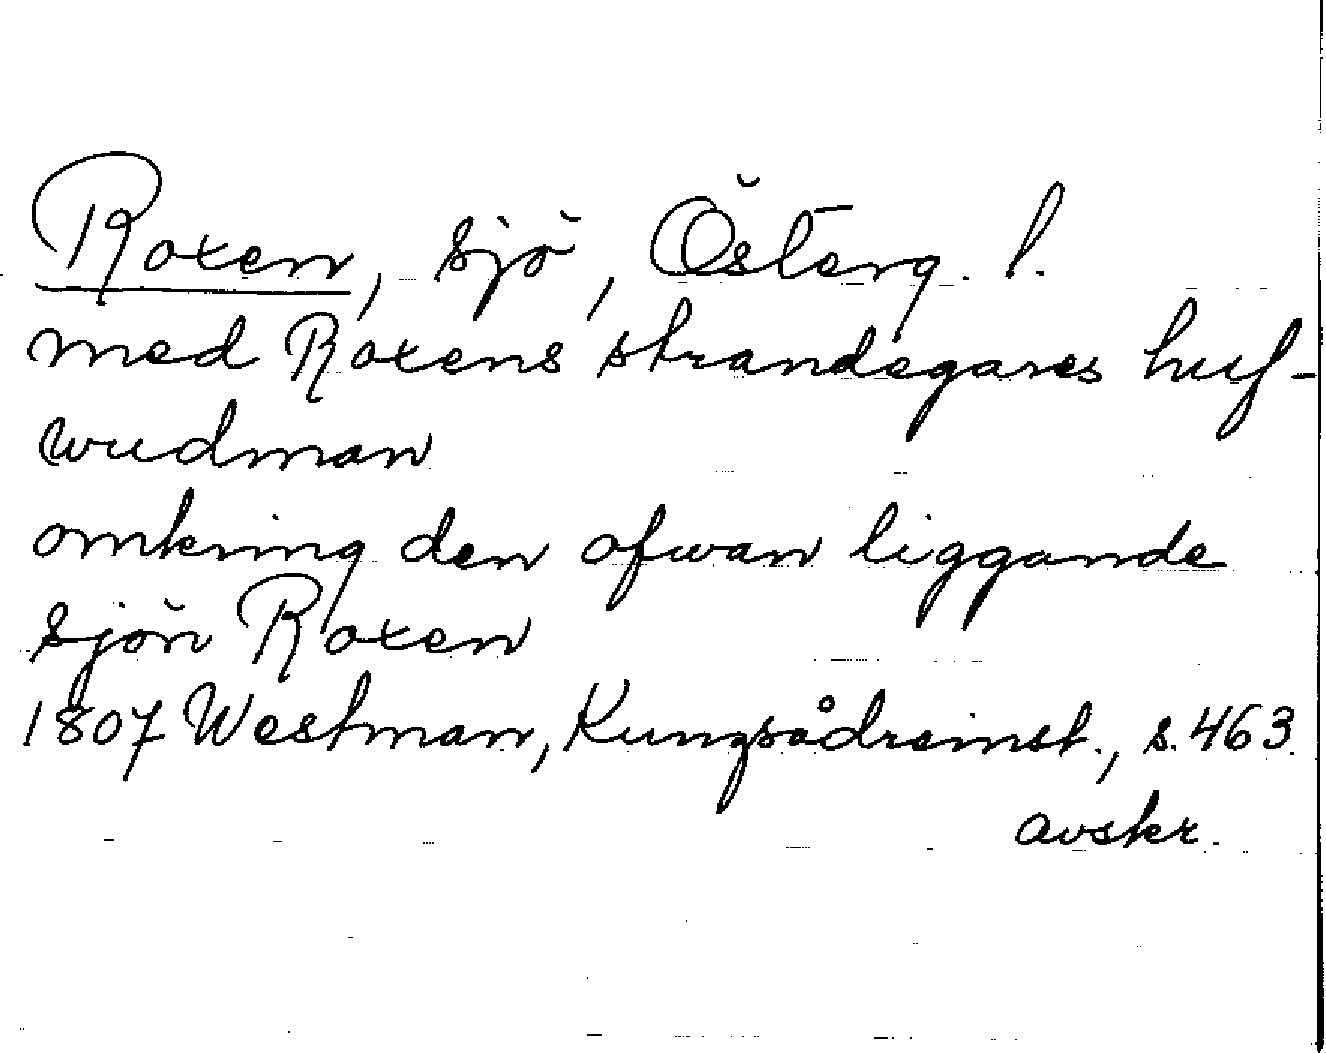 Roxen, sjö, Österg. l.
med Roxens strandegares huf-
wudman
omkring den ofwan liggande
sjön Roxen
1807 Westman, Kungsådreinst., s. 463
avskr.